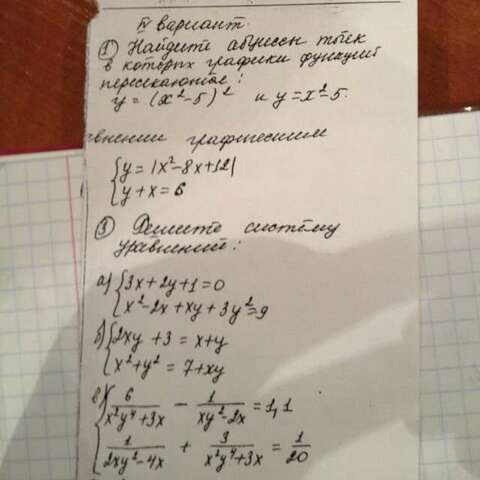 IV вариант.
① Найдите абциссы точек
в которых графики функций
пересекаются:
y = (x²-5)² и y = x²-5.
внении графическим
{y = |x²-8x+12|
{y+x = 6
③ Решите систему
уравнений:
а) {3x+2y+1=0
{x²-2x+xy+3y²=9
б) {2xy+3 = x+y
{x²+y² = 7+xy
в) {6/(x²y⁴+3x) - 1/(xy²-2x) = 1,1
{1/(2xy²-4x) + 3/(x²y⁴+3x) = 1/20